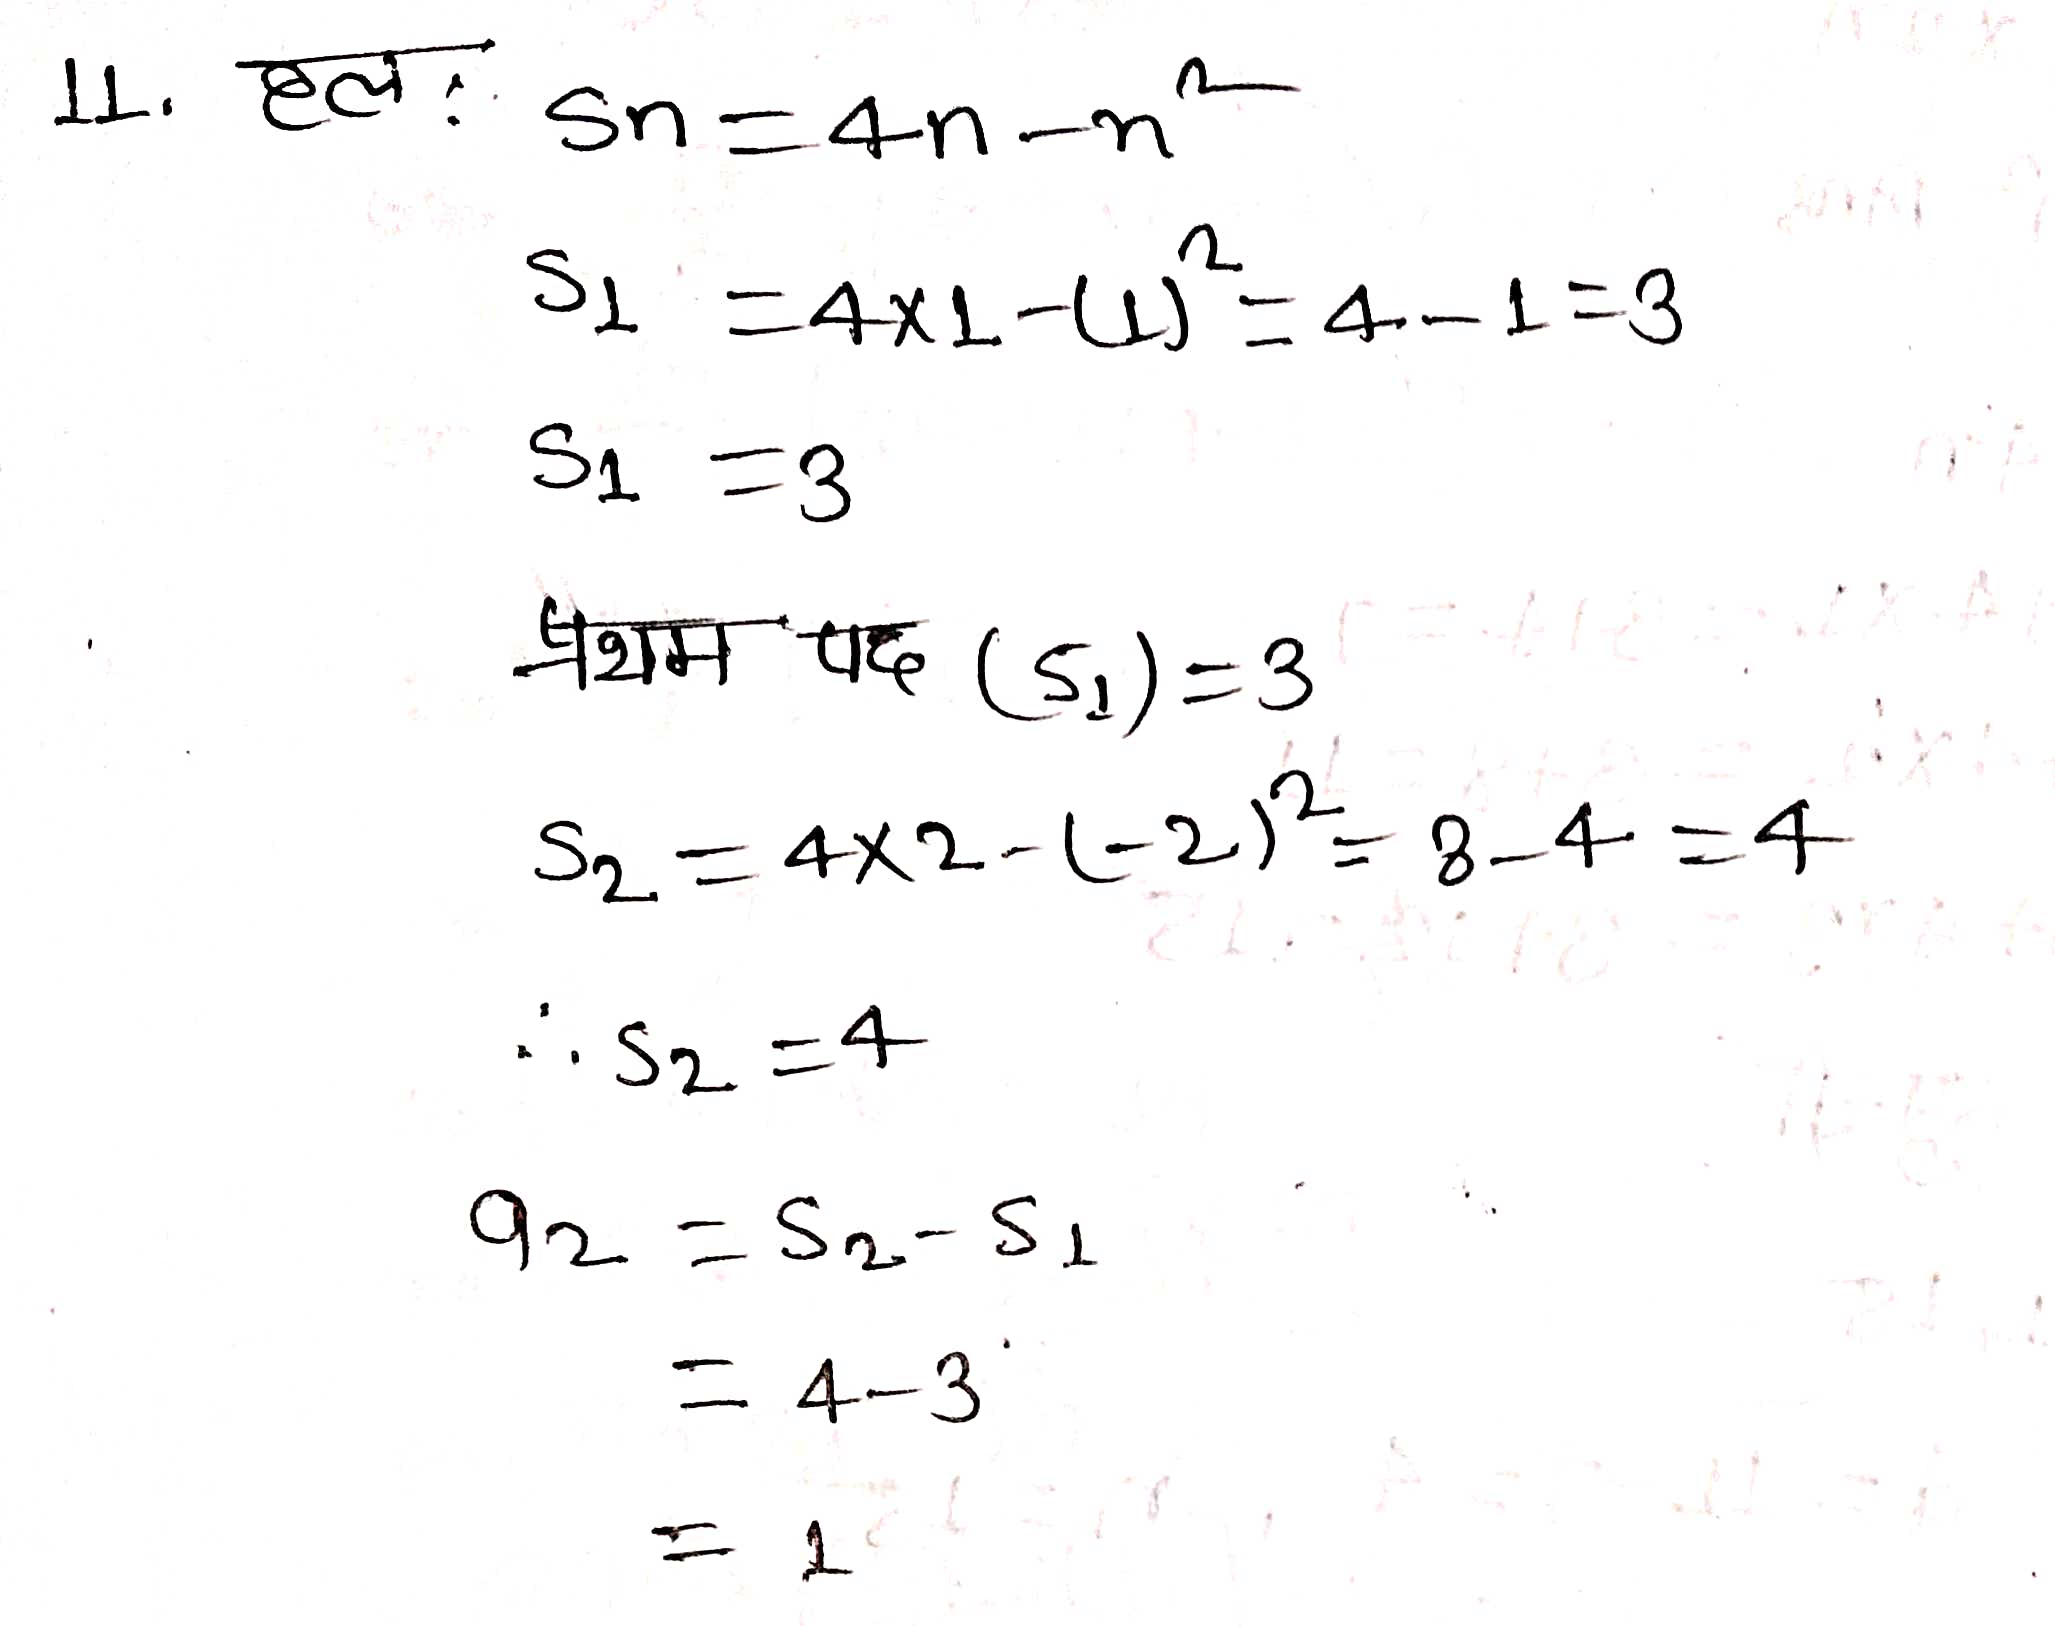 11. हल : Sn = 4n - n²
S1 = 4×1 - (1)² = 4 - 1 = 3
S1 = 3
प्रथम पद (S1) = 3
S2 = 4×2 - (-2)² = 8 - 4 = 4
∴ S2 = 4
a2 = S2 - S1
= 4 - 3
= 1